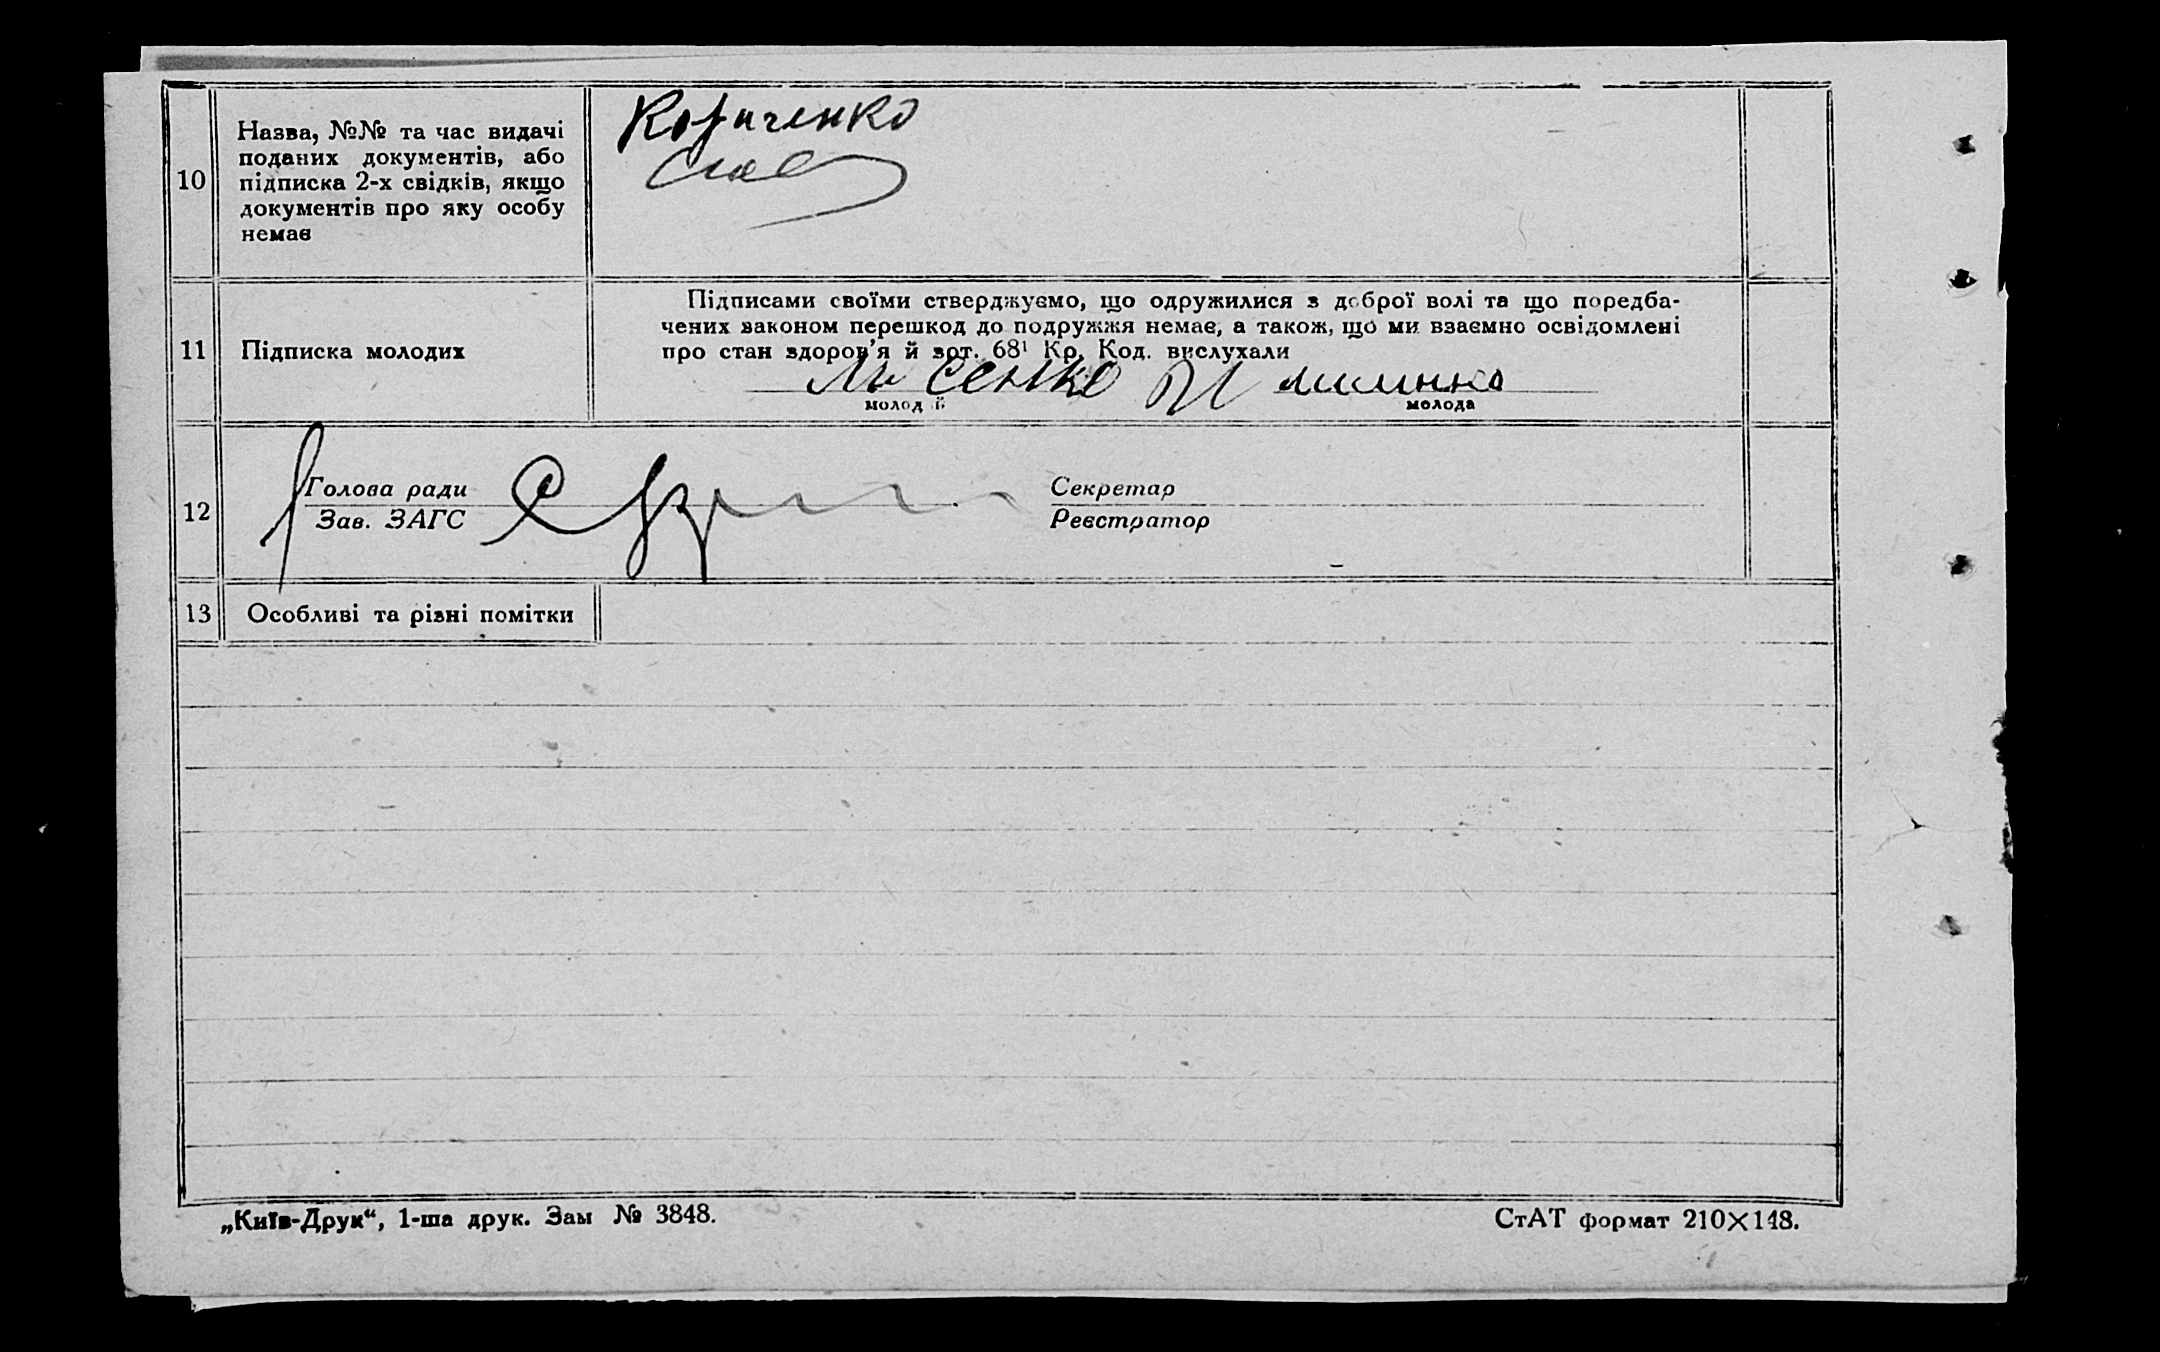 10
Назва, №№ та час видачі
поданих документів, або
підписка 2-х свідків, якщо
документів про яку особу
немає
11
Підписка молодих
Підписами своїми стверджуємо, що одружилися з доброї волі та що поредба-
чених законом перешкод до подружжя немає, а також, що ми взаємно освідомлені
про стан здоров’я й арт. 68¹ Кр. Код. вислухали
молодий
молода
12
Голова ради
Зав. ЗАГС
Секретар
Реєстратор
13
Особливі та різні помітки
„Київ-Друк“, 1-ша друк. Зам № 3848.
СтАТ формат 210×148.